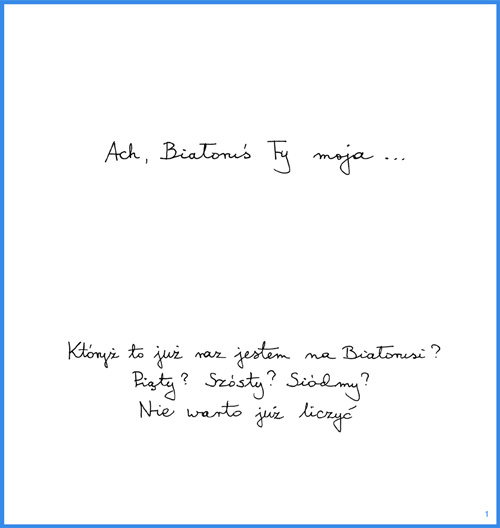 Ach, Białoruś Ty moja ...
Któryż to już raz jestem na Białorusi?
Piąty? Szósty? Siódmy?
Nie warto już liczyć
1